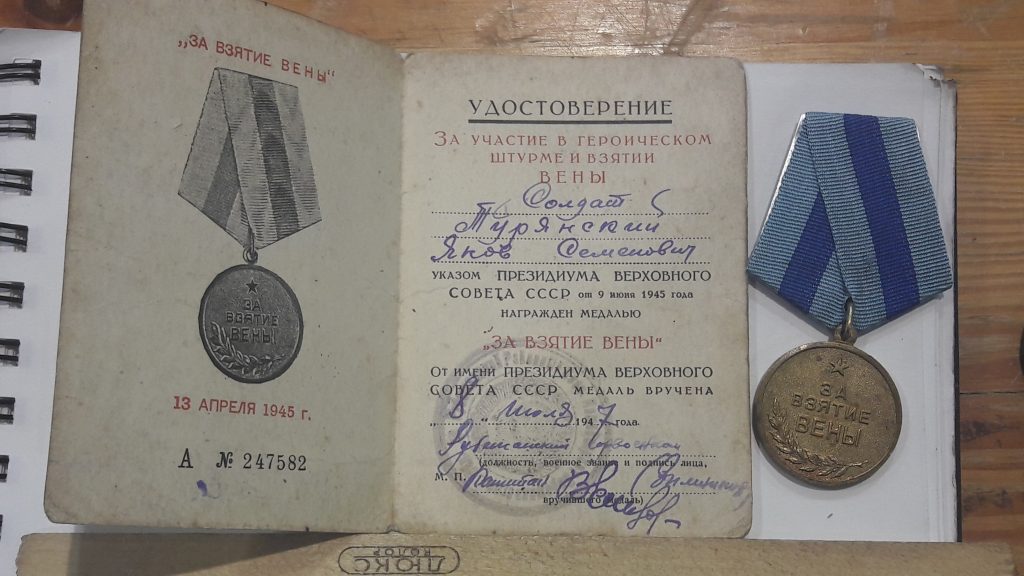 „ЗА ВЗЯТИЕ ВЕНЫ“
ЗА
ВЗЯТИЕ
ВЕНЫ
13 АПРЕЛЯ 1945 г.
А № 247582
УДОСТОВЕРЕНИЕ
ЗА УЧАСТИЕ В ГЕРОИЧЕСКОМ
ШТУРМЕ И ВЗЯТИИ
ВЕНЫ
Солдат
Турянский
Яков Семенович
УКАЗОМ ПРЕЗИДИУМА ВЕРХОВНОГО
СОВЕТА СССР от 9 июня 1945 года
НАГРАЖДЕН МЕДАЛЬЮ
„ЗА ВЗЯТИЕ ВЕНЫ“
ОТ ИМЕНИ ПРЕЗИДИУМА ВЕРХОВНОГО
СОВЕТА СССР МЕДАЛЬ ВРУЧЕНА
„8“ 1947 года.
(должность, военное звание и подпись лица,
М. П.
вручившего медаль)
ЗА
ВЗЯТИЕ
ВЕНЫ
ЛЮКС
КОЛОР